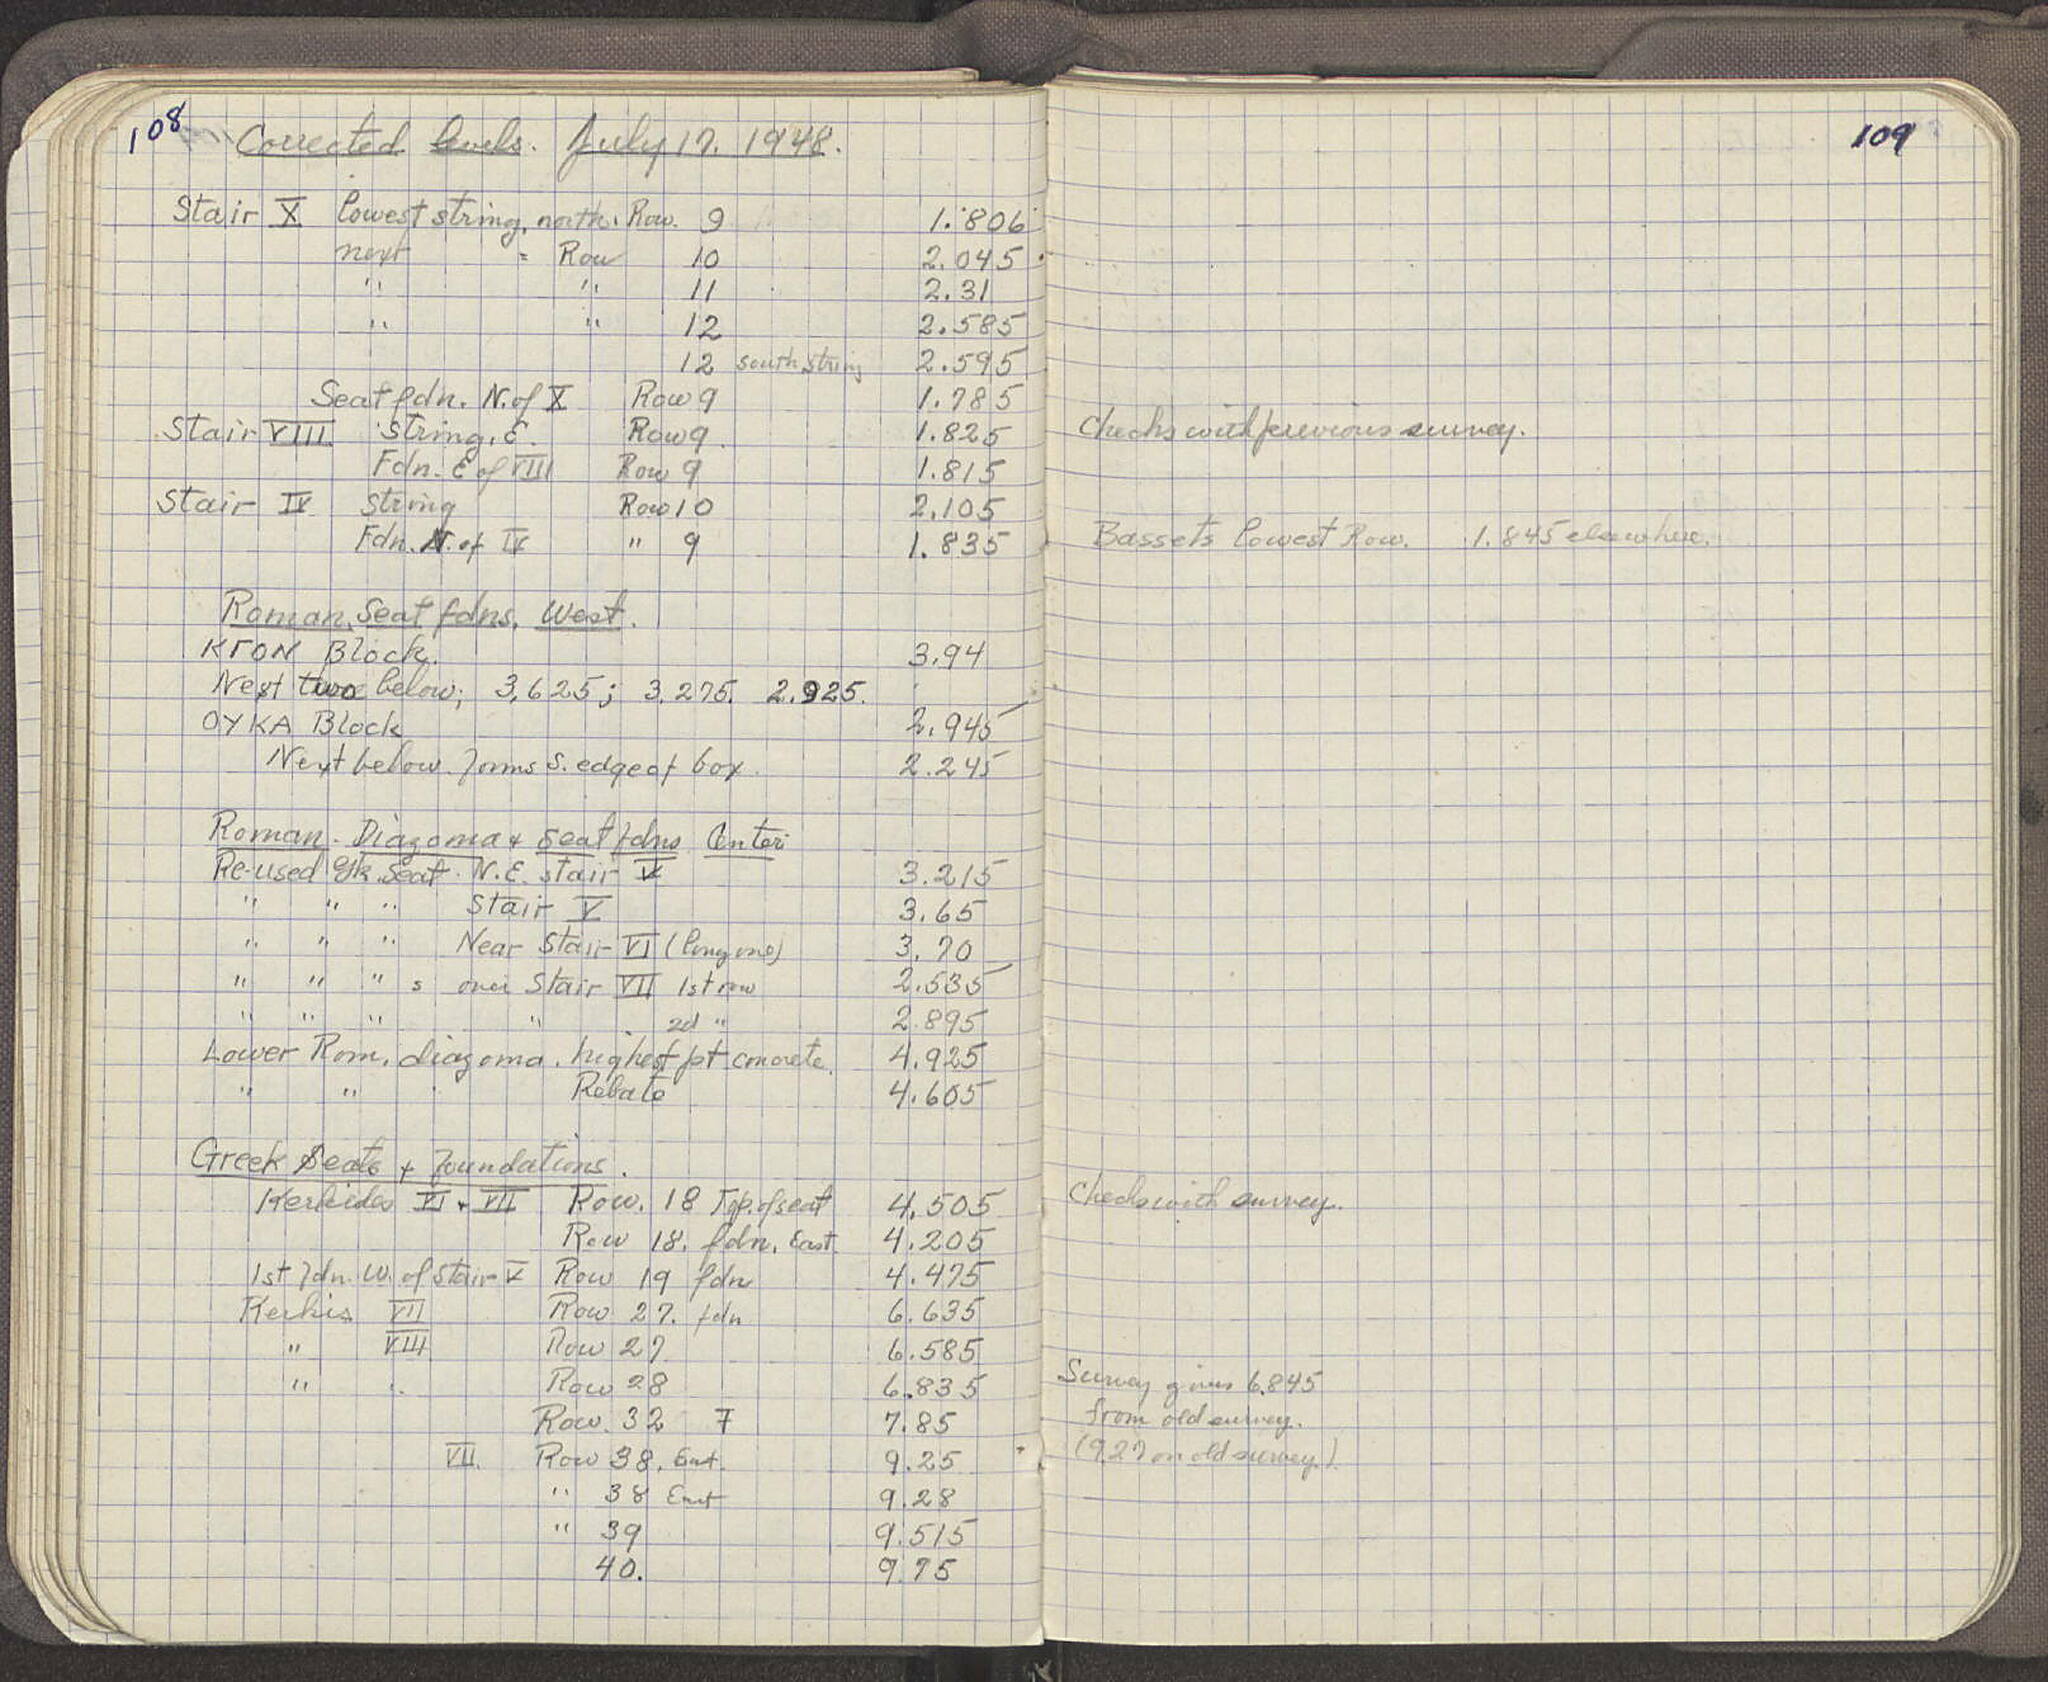 108
Corrected levels. July 17. 1948.
Stair X lowest string, north. Row. 9 1.806
next " Row 10 2.045
" " 11 2.31
" " 12 2.585
12 south string 2.595
Seat fdn. N. of X Row 9 1.785
Stair VIII String, E. Row 9. 1.825
Fdn. E of VIII Row 9 1.815
Stair IV String Row 10 2.105
Fdn. N. of IV " 9 1.835
Roman Seat fdns, West.
KTON Block. 3.94
Next two below; 3.625; 3.275. 2.925.
OYKA Block 2.945
Next below. Forms S. edge of box. 2.245
Roman. Diazoma + Seat fdns Center
Re-used Gk. Seat. N.E. stair V 3.215
" " " Stair V 3.65
" " " Near Stair VI (long one) 3.70
" " " s over Stair VII 1st row 2.535
" " " " 2d " 2.895
Lower Rom. diazoma. highest pt concrete. 4.925
" " Rebate 4.605
Greek Seats + Foundations.
Kerkides VI + VII Row. 18 Top of seat 4.505
Row 18. fdn. East 4.205
1st Fdn. W. of Stair V Row 19 fdn 4.475
Kerkis VII Row 27. fdn 6.635
" VIII Row 27 6.585
" " Row 28 6.835
Row. 32 F 7.85
VII. Row 38. East. 9.25
" 38 East 9.28
" 39 9.515
40. 9.75
109
Checks with previous survey.
Bassets lowest Row. 1.845 elsewhere.
Checks with survey.
Survey gives 6.845
from old survey.
(9.27 on old survey.)